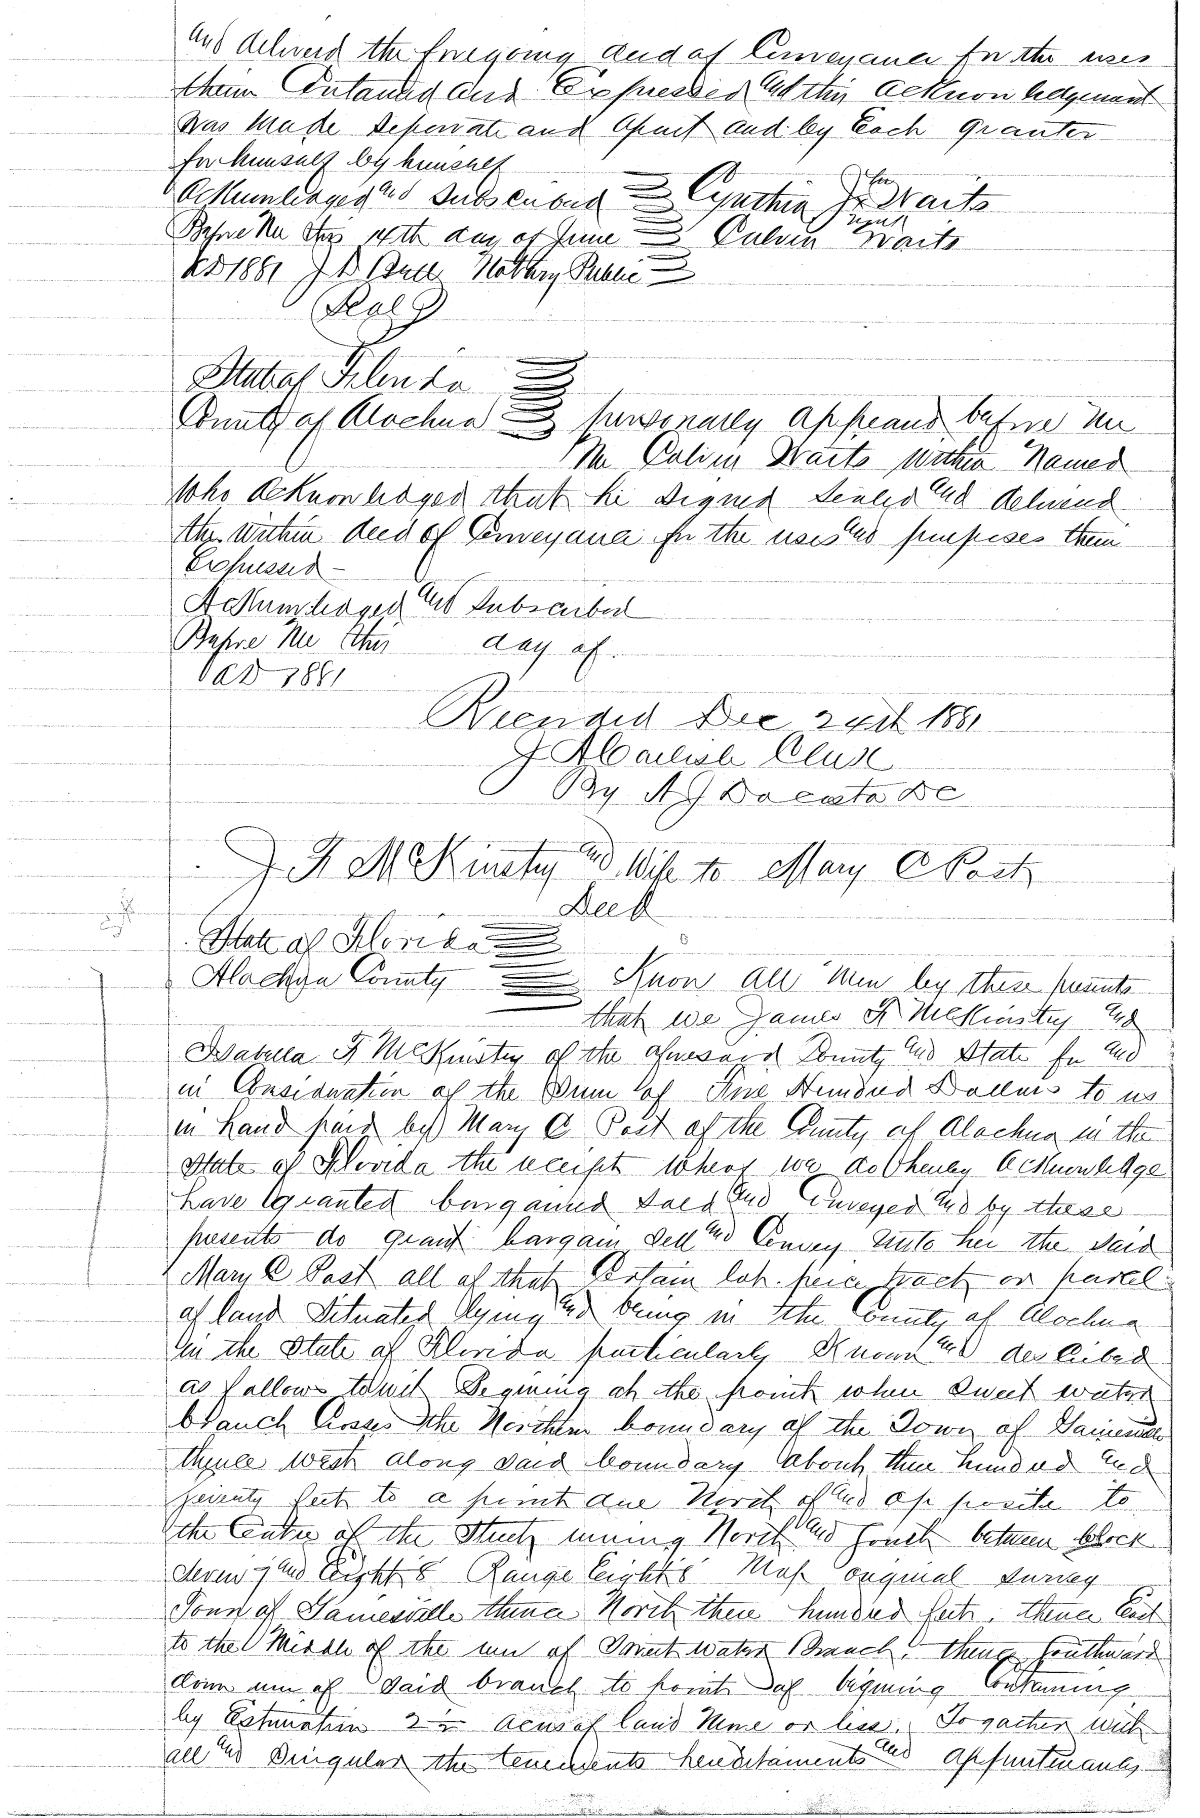 and deliverd the foregoing deed of Conveyance for the uses
therein Contained and Expressed and this acknowledgement
was made seperate and apart and by Each granter
for himself by himself
Acknowledged and subscribed Cynthia J her Waits
Before Me this 14th day of June mark Calvin Waits
AD 1881 Notary Public
Seal
State of Florida
County of Alachua personally appeared before me
Mr Calvin Waits within Named
who acknowledged that he signed sealed and deliverd
the within deed of Conveyance for the uses and purposes therein
Expressed
Acknowledged and subscribed
Before Me this day of
AD 1881
Recorded Dec 24th 1881
J A Carlisle Clerk
By A J Dacosta DC
J F McKinstry and Wife to Mary C Post
Deed
State of Florida
Alachua County Know all men by these presents
that we James F McKinstry and
Isabella F McKinstry of the aforesaid County and State for and
in Consideration of the Sum of Five Hundred Dollars to us
in hand paid by Mary C Post of the County of Alachua in the
State of Florida the receipt whereof we do hereby acknowledge
have granted bargained sold and Conveyed and by these
presents do grant bargain sell and Convey unto her the said
Mary C Post all of that Certain lot peice tract or parcel
of land Situated lying and being in the County of Alachua
in the State of Florida particularly Known and described
as follows towit Begining at the point where Sweet water
branch Crosses the Northern boundary of the Town of Gainesville
thence west along said boundary about three hundred and
seventy feet to a point due North of and opposite to
the Centre of the Street running North and South between block
seven 7 and Eight 8 Range Eight 8 Map original survey
Town of Gainesville thence North three hundred feet, thence East
to the Middle of the run of Sweet water Branch, thence Southward
down run of said branch to point of begining Containing
by Estimation 2½ acres of land More or less. Togather with
all and Singular the tenements hereditaments and appurtenances